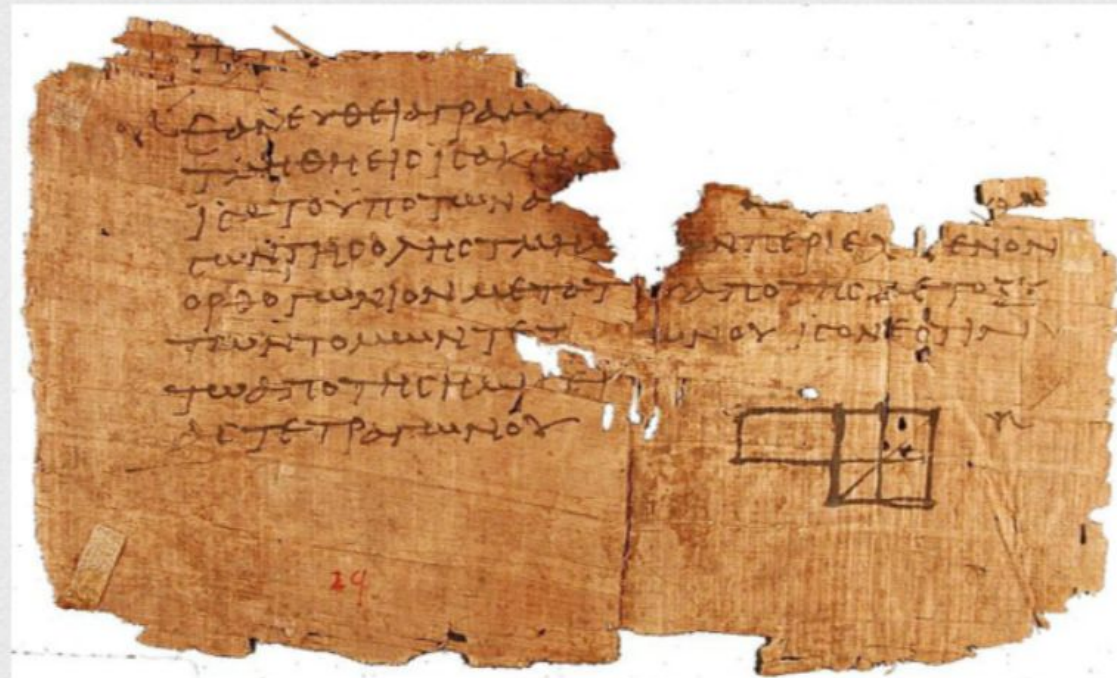 ΕΑΝΕΥΘΕΙΑΓΡΑΜΜ
ΤΜΗΘΗΕΙϹΙϹΑΚΑΙΑΝ
ΙϹΑΤΟΥΠΟΤΩΝΑ
ϹΩΝΤΗϹΟΛΗϹΤΜΗΜ ΩΝΠΕΡΙΕΧ ΜΕΝΟΝ
ΟΡΘΟΓΩΝΙΟΝΜΕΤΑΤ ΑΠΟΤΗϹΜΕΤΟΞΥ
ΤΩΝΤΟΜΩΝΤΕΤ ΩΝΟΥΙϹΟΝΕϹΤΙΝ
ΤΩΑΠΟΤΗϹΗΜΙϹ
ΑϹΤΕΤΡΑΓΩΝΟΥ
29